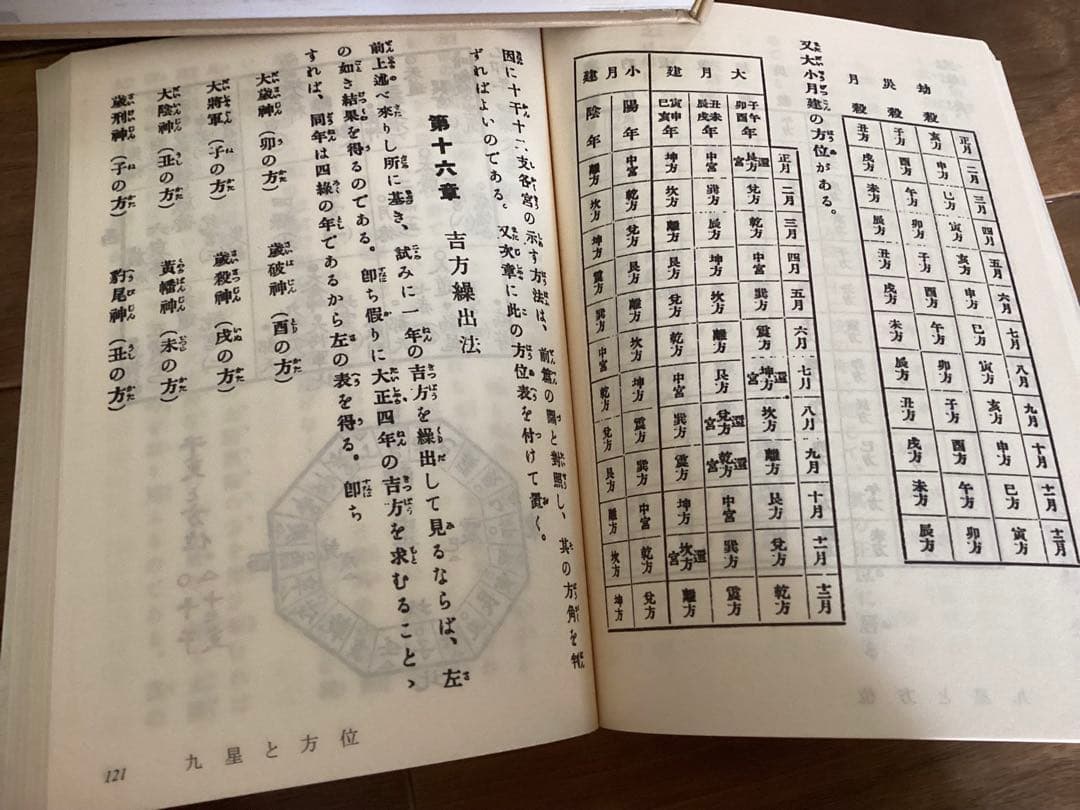 正月 二月 三月 四月 五月 六月 七月 八月 九月 十月 十一月 十二月
劫殺 亥方 申方 巳方 寅方 亥方 申方 巳方 寅方 亥方 申方 巳方 寅方
災殺 子方 酉方 午方 卯方 子方 酉方 午方 卯方 子方 酉方 午方 卯方
月殺 丑方 戌方 未方 辰方 丑方 戌方 未方 辰方 丑方 戌方 未方 辰方
又大小月建の方位がある。
正月 二月 三月 四月 五月 六月 七月 八月 九月 十月 十一月 十二月
大月建
子午卯酉年 艮方還宮 兌方 乾方 中宮 巽方 震方 坤方還宮 坎方 離方 艮方 兌方 乾方
丑未辰戌年 中宮 巽方 辰方 坤方 坎方 離方 艮方 兌方還宮 乾方還宮 中宮 巽方 震方
寅申巳亥年 坤方 坎方 離方 艮方 兌方 乾方 中宮 巽方 震方 坤方 坎方還宮 離方
小月建
陽年 中宮 乾方 兌方 艮方 離方 坎方 坤方 震方 巽方 中宮 乾方 兌方
陰年 離方 坎方 坤方 震方 巽方 中宮 乾方 兌方 艮方 離方 坎方 坤方
因に十干十二支各宮の示す方法は、前篇の圖と對照し、其の方角を判
ずればよいのである。又次章に此の方位表を付けて置く。
第十六章 吉方繰出法
前上述べ來りし所に基き、試みに一年の吉方を繰出して見るならば、左
の如き結果を得るのである。卽ち假りに大正四年の吉方を求むること、
すれば、同年は四綠の年であるから左の表を得る。卽ち
大歳神(卯の方) 歳破神(酉の方)
大將軍(子の方) 歳殺神(戌の方)
大陰神(丑の方) 黃幡神(未の方)
歳刑神(子の方) 豹尾神(丑の方)
121 九星と方位